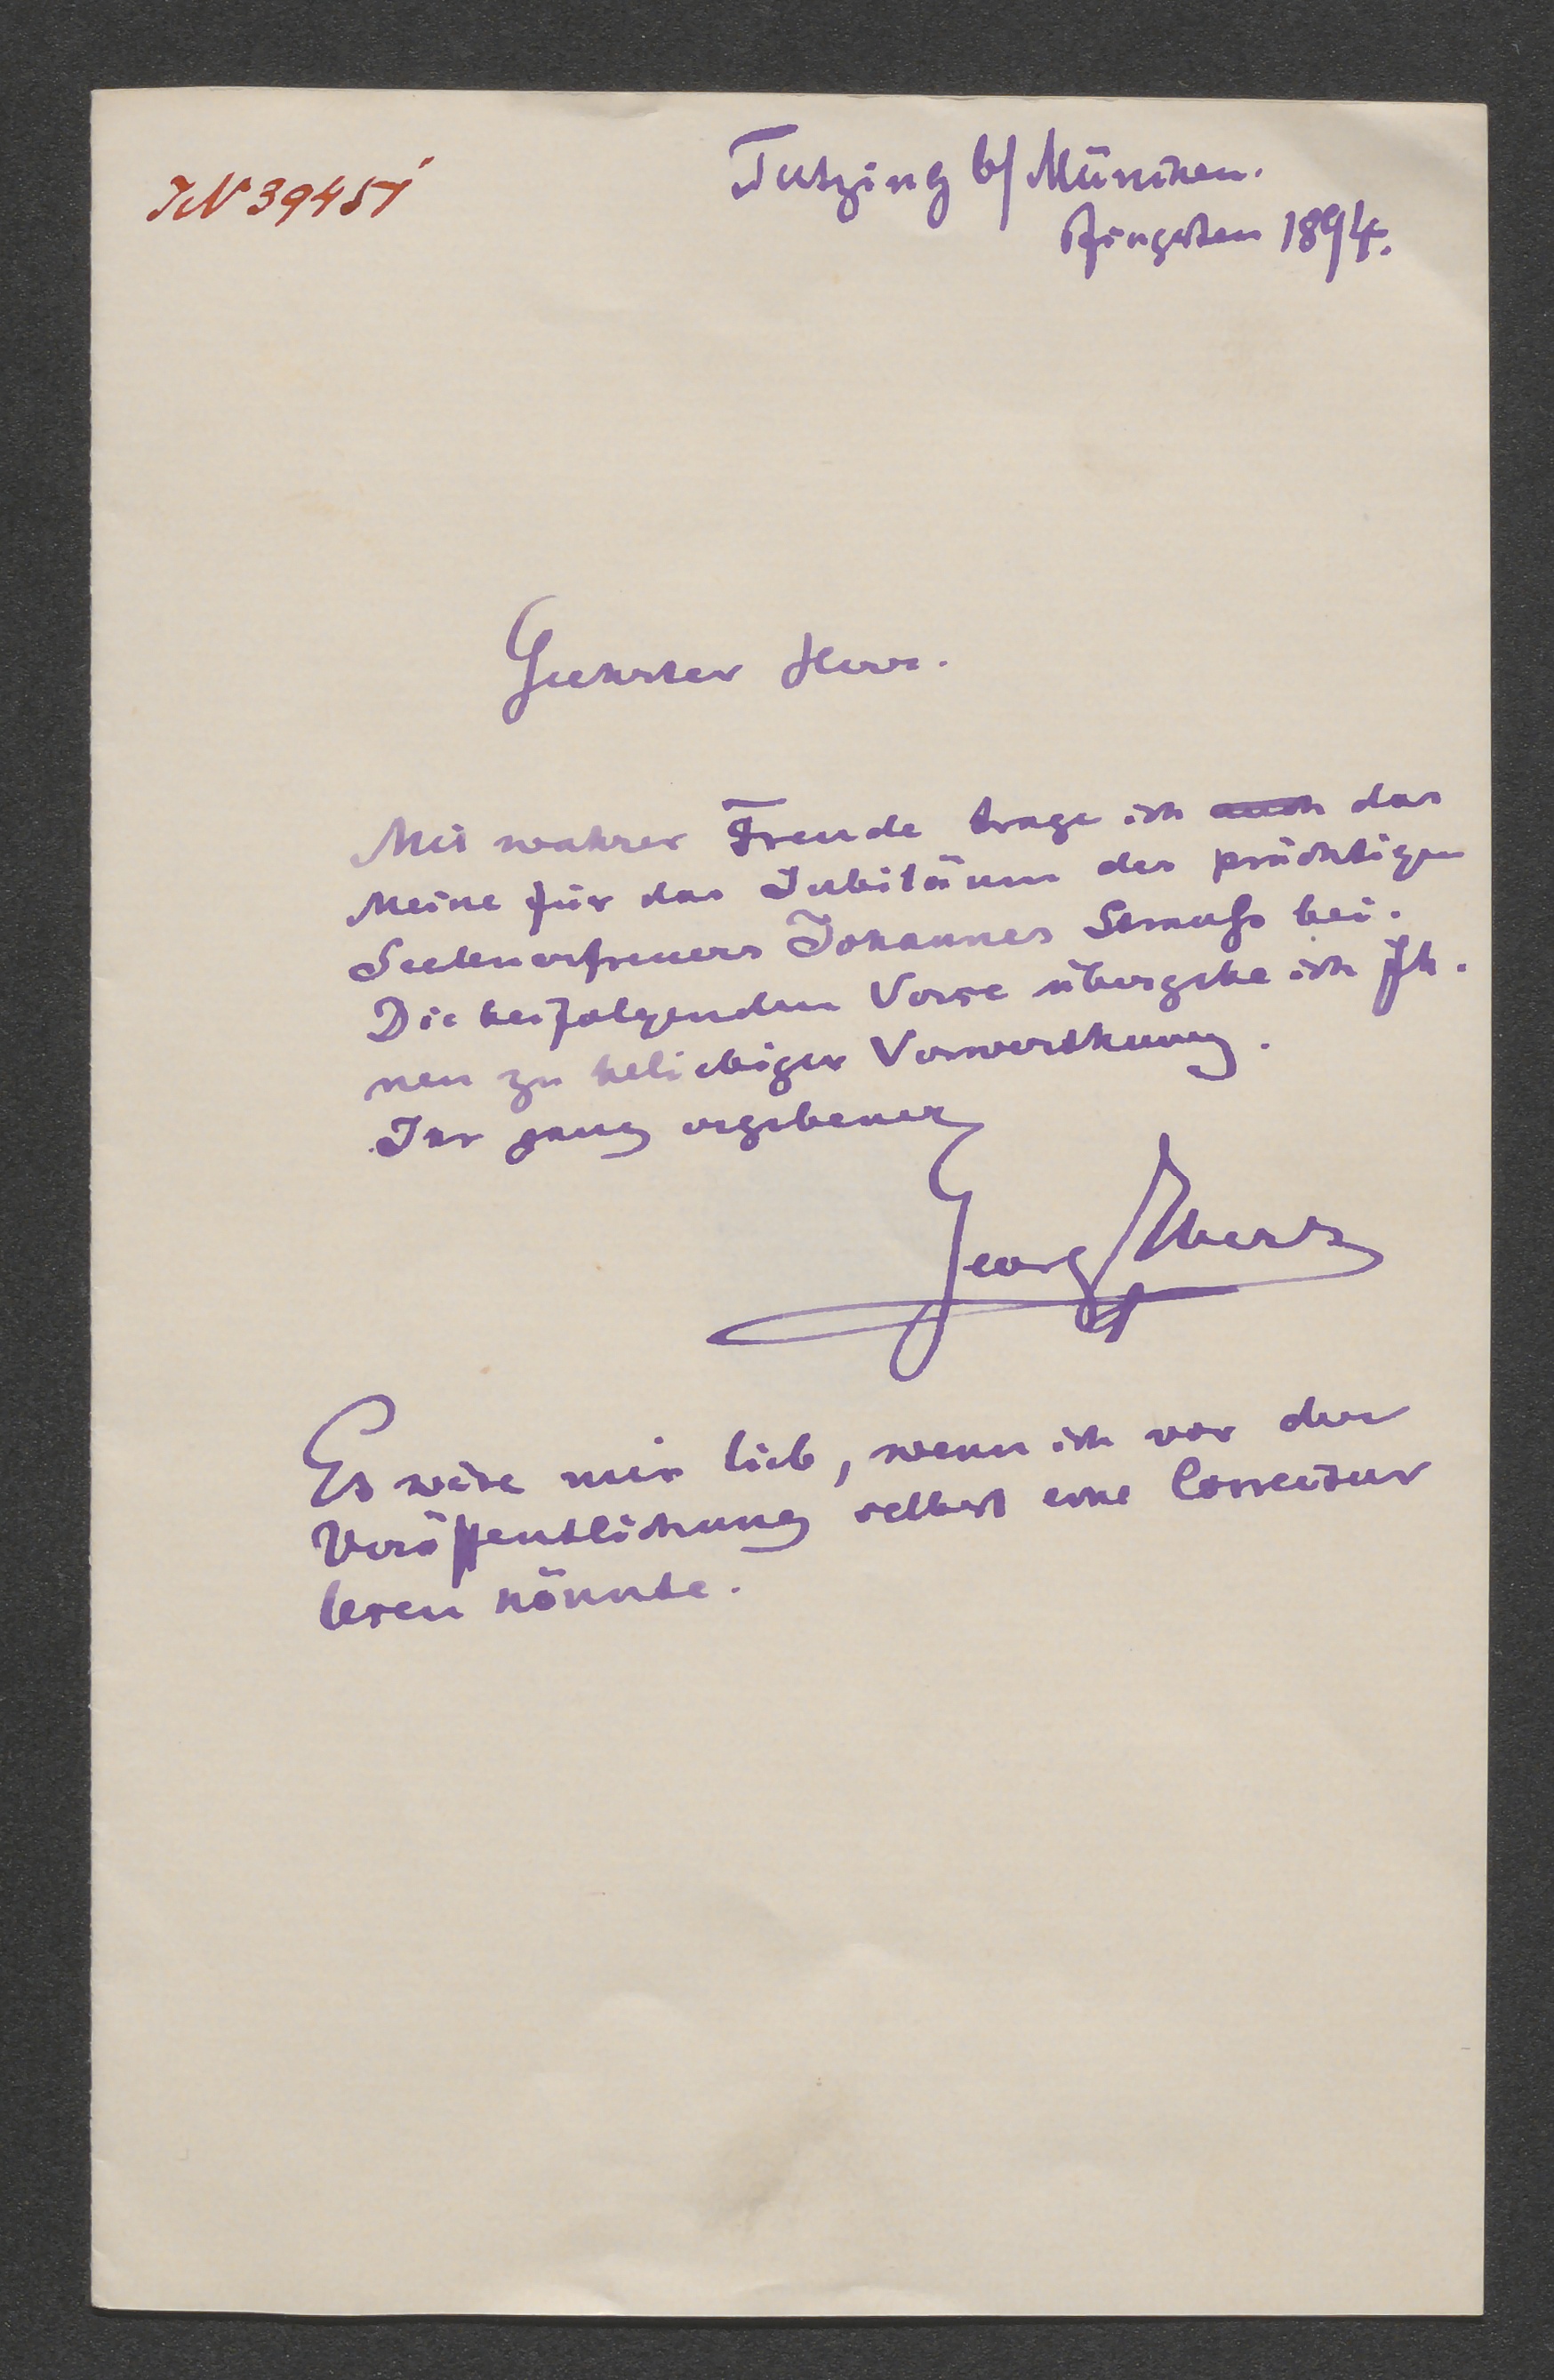 IN 39451
Tutzing b/ München.
Pfingsten 1894.
Geehrter Herr.
Mit wahrer Freude trage ich auch das
Meine für das Jubiläum des prächtigen
Seelenerfreuers Johannes Strauß bei.
Die beifolgenden Verse übergebe ich Ih-
nen zu beliebiger Verwerthung.
Ihr ganz ergebener
Georg Ebers
Es wäre mir lieb, wenn ich vor der
Veröffentlichung selbst eine Correctur
lesen könnte.